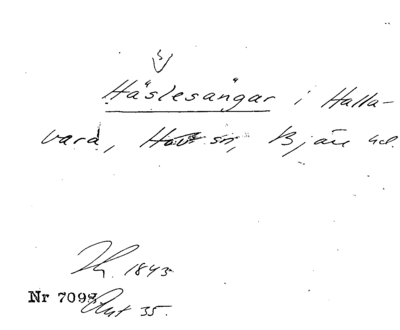 Häslesängar i Halla-
vara, Hov sn, Bjäre hd.
1843
Nr 7098
Ant 35.